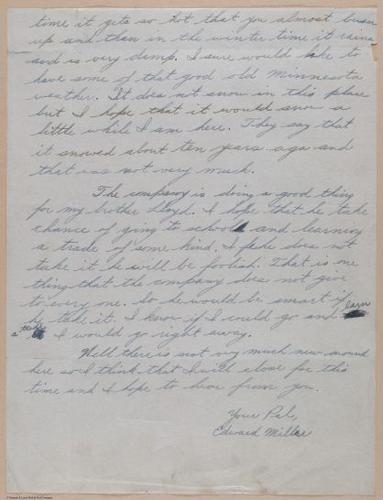 time it gets so hot that you almost burn
up and then in the winter time it rains
and is very damp. I sure would like to
have some of that good old Minnesota
weather. It does not snow in this place
but I hope that it would snow a
little while I am here. They say that
it snowed about ten years ago and
that was not very much.
The company is doing a good thing
for my brother Lloyd. I hope that he take
chance of going to school and learning
a trade of some kind. If he does not
take it he will be foolish. That is one
thing that the company does not give
to every one. So he would be smart if
he take it. I know if I could go and learn
a trade I would go right away.
Well there is not very much new around
here so I think that I will close for this
time and I hope to hear from you.
Your Pal,
Edward Miller